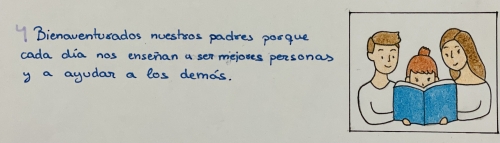 4 Bienaventurados nuestros padres porque
cada día nos enseñan a ser mejores personas
y a ayudar a los demás.